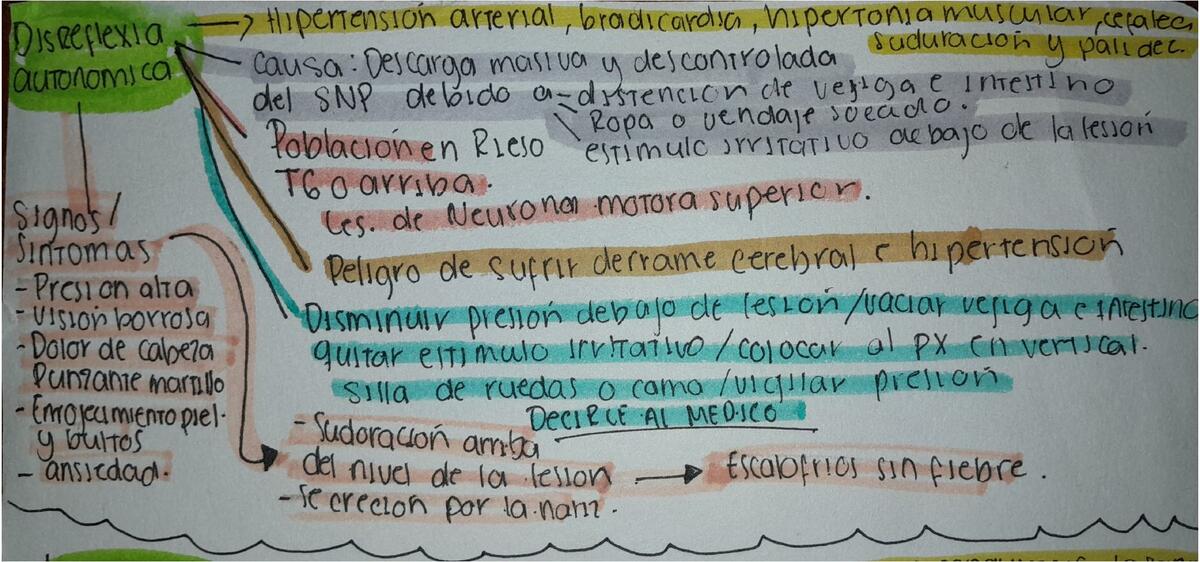 Disreflexia
autonomica
Hipertensión arterial, bradicardia, hipertonia muscular, cefalec,
suduración y palidec.
causa: Descarga masiva y descontrolada
del SNP debido a - distención de vejiga e intestino
Ropa o vendaje socado.
estimulo irritativo debajo de la lesion
Población en Rieso
T6 o arriba.
Les. de Neurona motora superior.
Peligro de sufrir derrame cerebral e hipertensión
Disminuir presión debajo de lesion/vaciar vejiga e intestino
quitar estimulo irritativo/colocar al PX en vertical.
silla de ruedas o cama/vigilar presion
DECIRLE AL MEDICO
Signos/
Sintomas
- Presion alta
- Vision borrosa
- Dolor de cabeza
Punzante martillo
- Enrojecimiento piel.
y bultos
- ansiedad.
- Sudoración arriba
del nivel de la lesion
Escalofrios sin fiebre.
- Secrecion por la nariz.